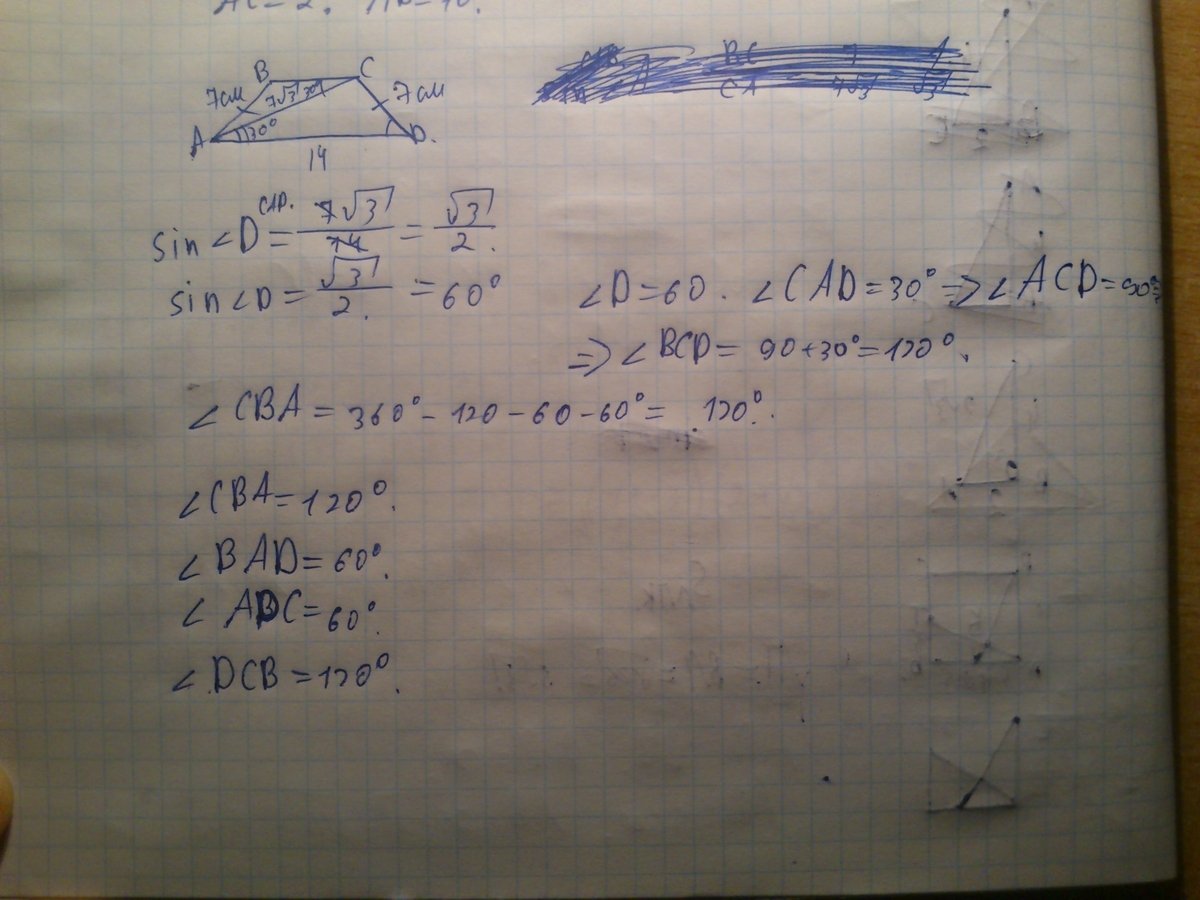 B C
7см 7√3 30° 7см
A 30° D.
14
sin ∠D CAD. = 7√3 / 14 = √3 / 2.
sin ∠D = √3 / 2. = 60°
∠D = 60. ∠CAD = 30° => ∠ACD = 90° =>
=> ∠BCD = 90 + 30° = 120°.
∠CBA = 360° - 120 - 60 - 60° = 120°.
∠CBA = 120°.
∠BAD = 60°.
∠ADC = 60°.
∠DCB = 120°.